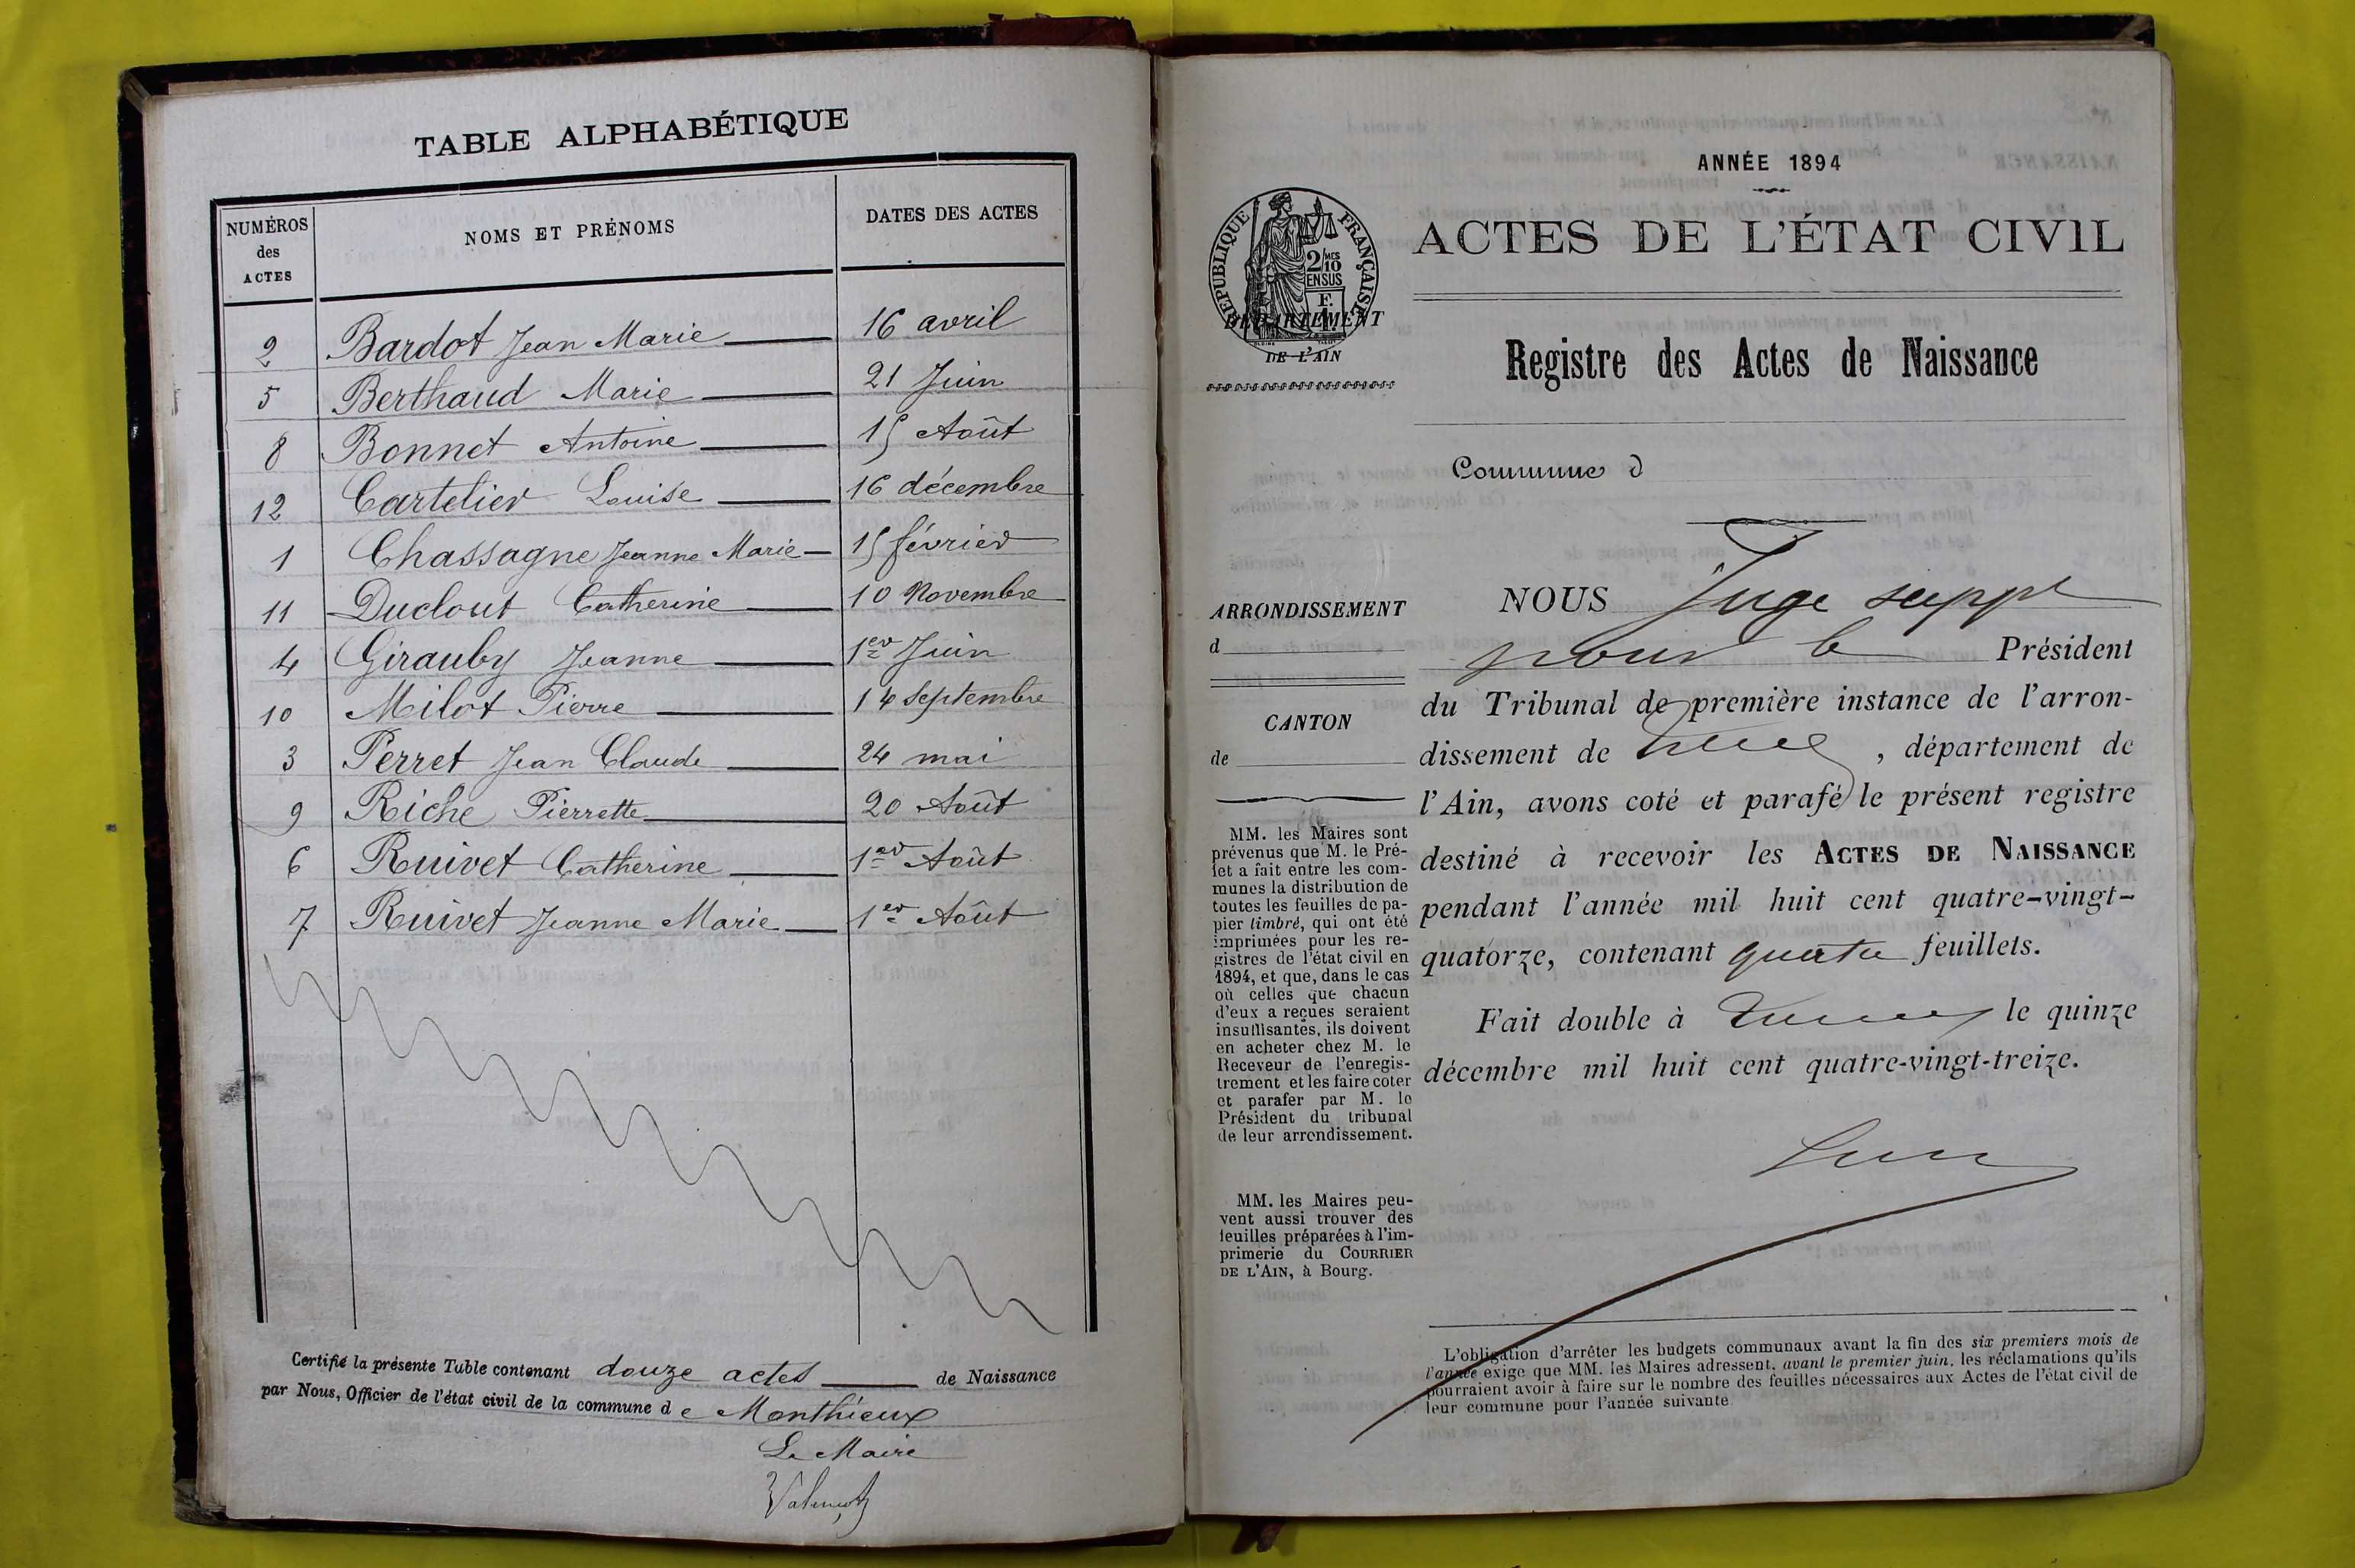 TABLE ALPHABÉTIQUE
NUMÉROS des ACTES NOMS ET PRÉNOMS DATES DES ACTES
2 Bardot Jean Marie 16 avril
5 Berthaud Marie 21 Juin
8 Bonnet Antoine 15 Août
12 Cartelier Louise 16 décembre
1 Chassagne Jeanne Marie 15 février
11 Duclout Catherine 10 Novembre
4 Girauby Jeanne 1er Juin
10 Milot Pierre 14 Septembre
3 Perret Jean Claude 24 mai
9 Riche Pierrette 20 Août
6 Ruivet Catherine 1er Août
7 Ruivet Jeanne Marie 1er Août
Certifié la présente Table contenant douze actes de Naissance
par Nous, Officier de l'état civil de la commune de Monthieux
Le Maire
ANNÉE 1894
RÉPUBLIQUE FRANÇAISE
2 MES 10
EN SUS
F.
DÉPARTEMENT
DE L'AIN
ACTES DE L'ÉTAT CIVIL
Registre des Actes de Naissance
Commune d
ARRONDISSEMENT
d
CANTON
de
MM. les Maires sont
prévenus que M. le Pré-
fet a fait entre les com-
munes la distribution de
toutes les feuilles de pa-
pier timbré, qui ont été
imprimées pour les re-
gistres de l'état civil en
1894, et que, dans le cas
où celles que chacun
d'eux a reçues seraient
insuffisantes, ils doivent
en acheter chez M. le
Receveur de l'enregis-
trement et les faire coter
et parafer par M. le
Président du tribunal
de leur arrondissement.
MM. les Maires peu-
vent aussi trouver des
feuilles préparées à l'im-
primerie du COURRIER
DE L'AIN, à Bourg.
NOUS Juge suppt
pour le Président
du Tribunal de première instance de l'arron-
dissement de , département de
l'Ain, avons coté et parafé le présent registre
destiné à recevoir les ACTES DE NAISSANCE
pendant l'année mil huit cent quatre-vingt-
quatorze, contenant quatre feuillets.
Fait double à le quinze
décembre mil huit cent quatre-vingt-treize.
L'obligation d'arrêter les budgets communaux avant la fin des six premiers mois de
l'année exige que MM. les Maires adressent, avant le premier juin, les réclamations qu'ils
pourraient avoir à faire sur le nombre des feuilles nécessaires aux Actes de l'état civil de
leur commune pour l'année suivante